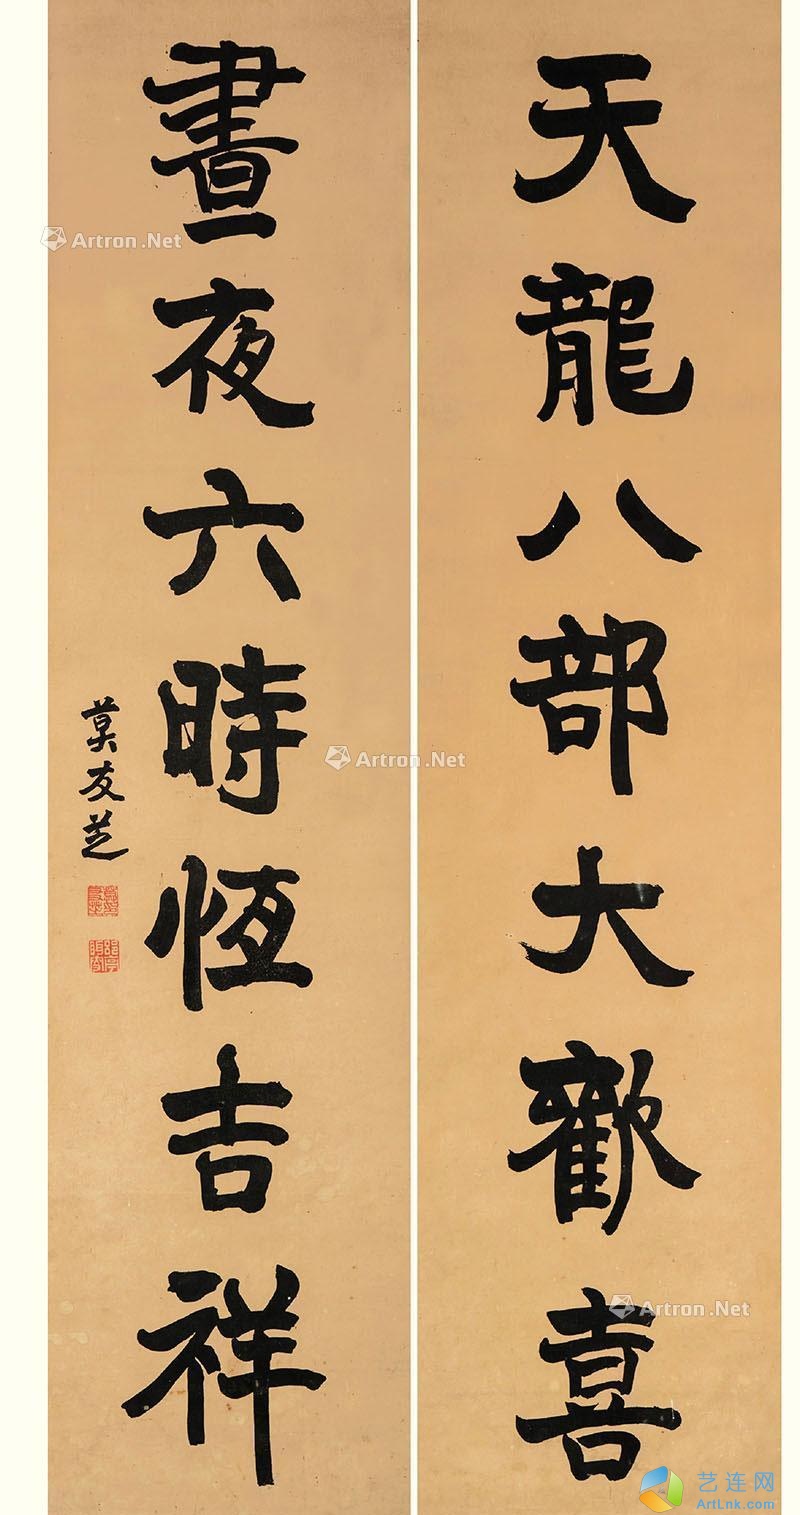 天龍八部大歡喜
晝夜六時恆吉祥
莫友芝
Artron.Net
Artron.Net
Artron.Net
艺连网
ArtLnk.com